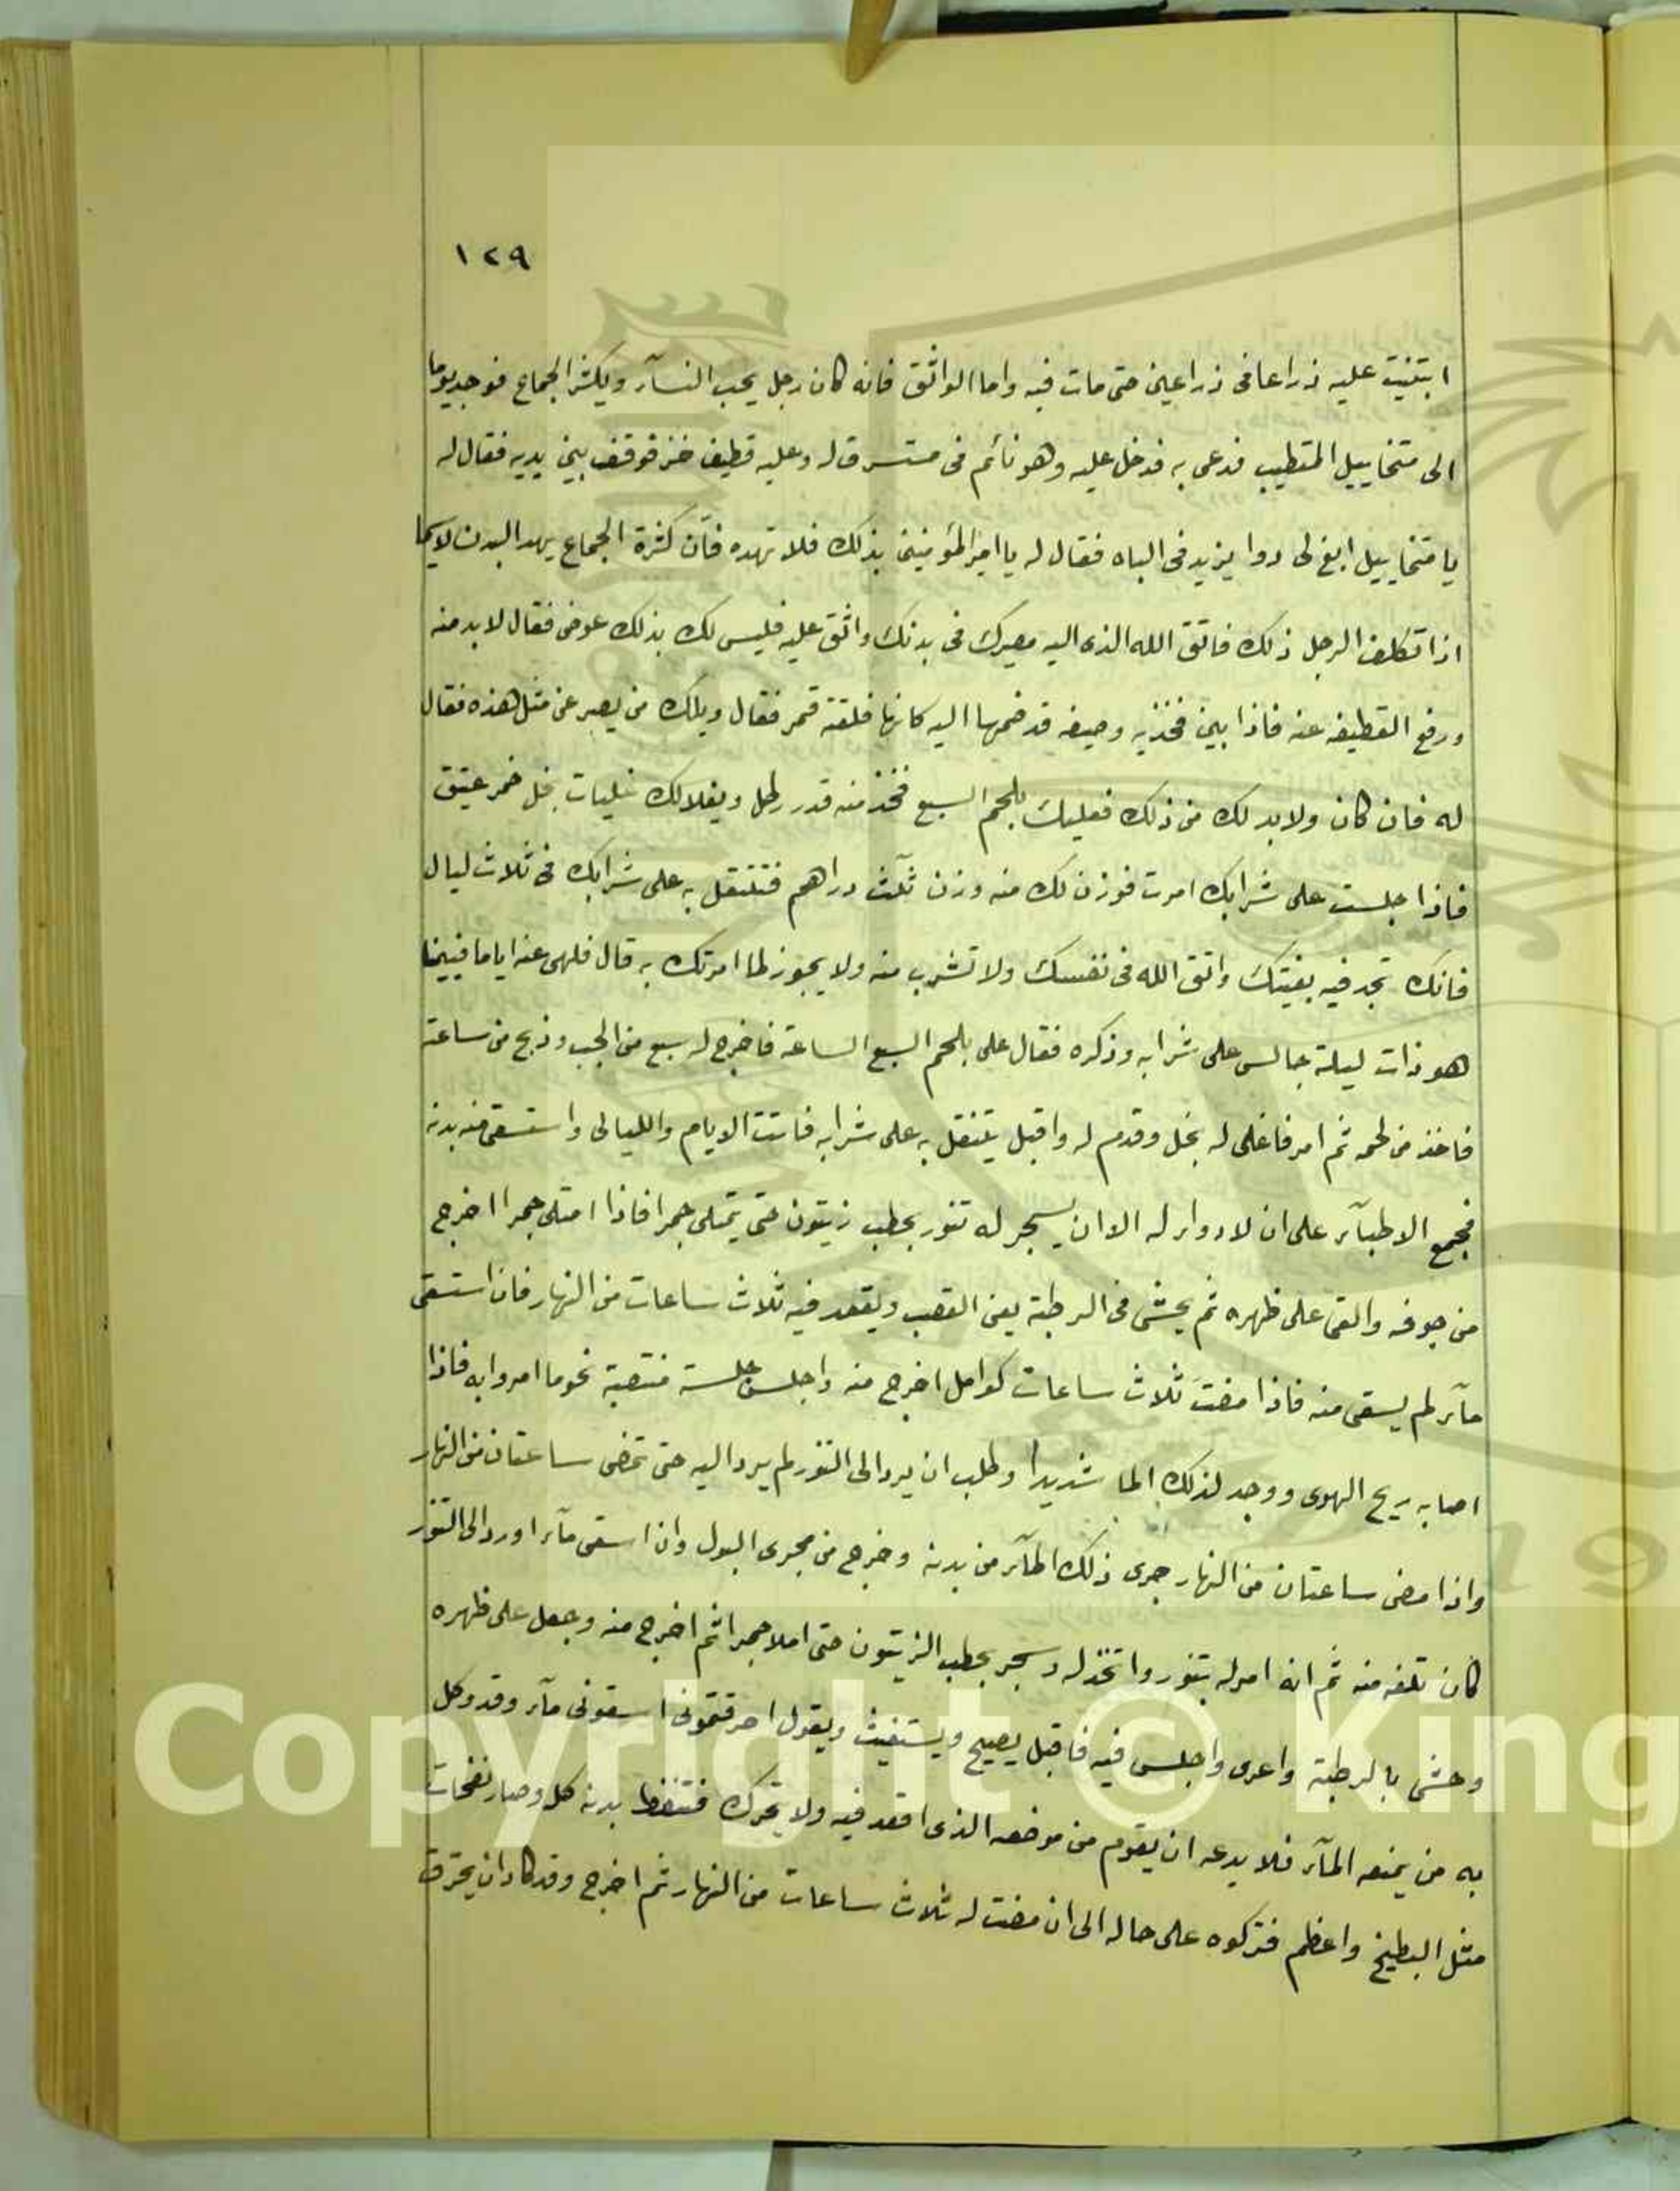 ١٢٩
ابتنيت عليه ذراعا فى ذراعين حتى مات فيه واما الواثق فانه كان رجل يحب النسآء ويكثر الجماع فوجد يوما
الى متخاييل المتطبب فدعى به فدخل عليه وهو نائم فى مسترق له وعليه قطيف خز فوقف بين يديه فقال له
يا متخاييل ابغ لى دوا يزيد فى الباه فقال له يا امير المؤمنين بذلك فلا تهده فآن كثرة الجماع يهد البدن لاسيما
اذا تكلف الرجل ذلك فاتق الله الذى اليه مصيرك فى بدنك واتق عليه فليس لك بذلك عوض فقال لا بد منه
ورفع القطيفه عنه فاذا بين فخذيه وصيفه قد ضمها اليه كانها فلقة قمر فقال ويلك من يصبر عن مثل هذه فقال
له فان كان ولا بد لك من ذلك فعليك بلحم السبع فخذ منه قدر رطل ويغلالك غليات بخل خمر عتيق
فاذا جلست على شرابك امرت فوزن لك منه وزن ثلث دراهم فتنتقل به على شرابك فى ثلاث ليال
فانك تجد فيه بغيتك واتق الله فى نفسك ولا تشرب منه ولا يجوز لما امرتك به قال فلهى عنه اياما فبينما
هو ذات ليلة جالس على شرابه وذكره فقال على بلحم السبع الساعة فاخرج له سبع من الجب وذبح من ساعته
فاخذ من لحمه ثم امر فاغلى له بخل وقدم له واقبل يتنقل به على شرابه فاتت الايام والليالى واستسقى منه بدنه
فجمع الاطبآء على ان لا دواء له الا ان يسجر له تنور بحطب زيتون حتى يمتلى جمرا فاذا امتلى جمرا اخرج
من جوفه والقى على ظهره ثم يحشى فى الرطبة يعنى القصب ويقعد فيه ثلاث ساعات من النهار فان استسقى
مآء لم يسقى منه فاذا مضت ثلاث ساعات كوامل اخرج منه واجلس جلسة منتصبة نحوما امروا به فاذا
اصابه ريح الهوى ووجد لذلك الما شديدا وطلب ان يرد الى التنور لم يرد اليه حتى تمضى ساعتان من النهار
واذا مضى ساعتان من النهار جرى ذلك المآء من بدنه وخرج من مجرى البول وان اسقى مآء او رد الى التنور
كان تلفه منه ثم انه امر له بتنور واتخذ له وسجر بحطب الزيتون حتى املا جمرا ثم اخرج منه وجعل على ظهره
وحشى بالرطبة واعرى واجلس فيه فاقبل يصيح ويستغيث ويقول احرقتمونى اسقونى مآء وقد وكل
به من يمنعه المآء فلا يدعه ان يقوم من موضعه الذى اقعد فيه ولا يتحرك فتنفط بدنه كله وصار نفخات
مثل البطيخ واعظم فتركوه على حاله الى ان مضت له ثلاث ساعات من النهار ثم اخرج وقد كاد ان يحترق
Copyright © King